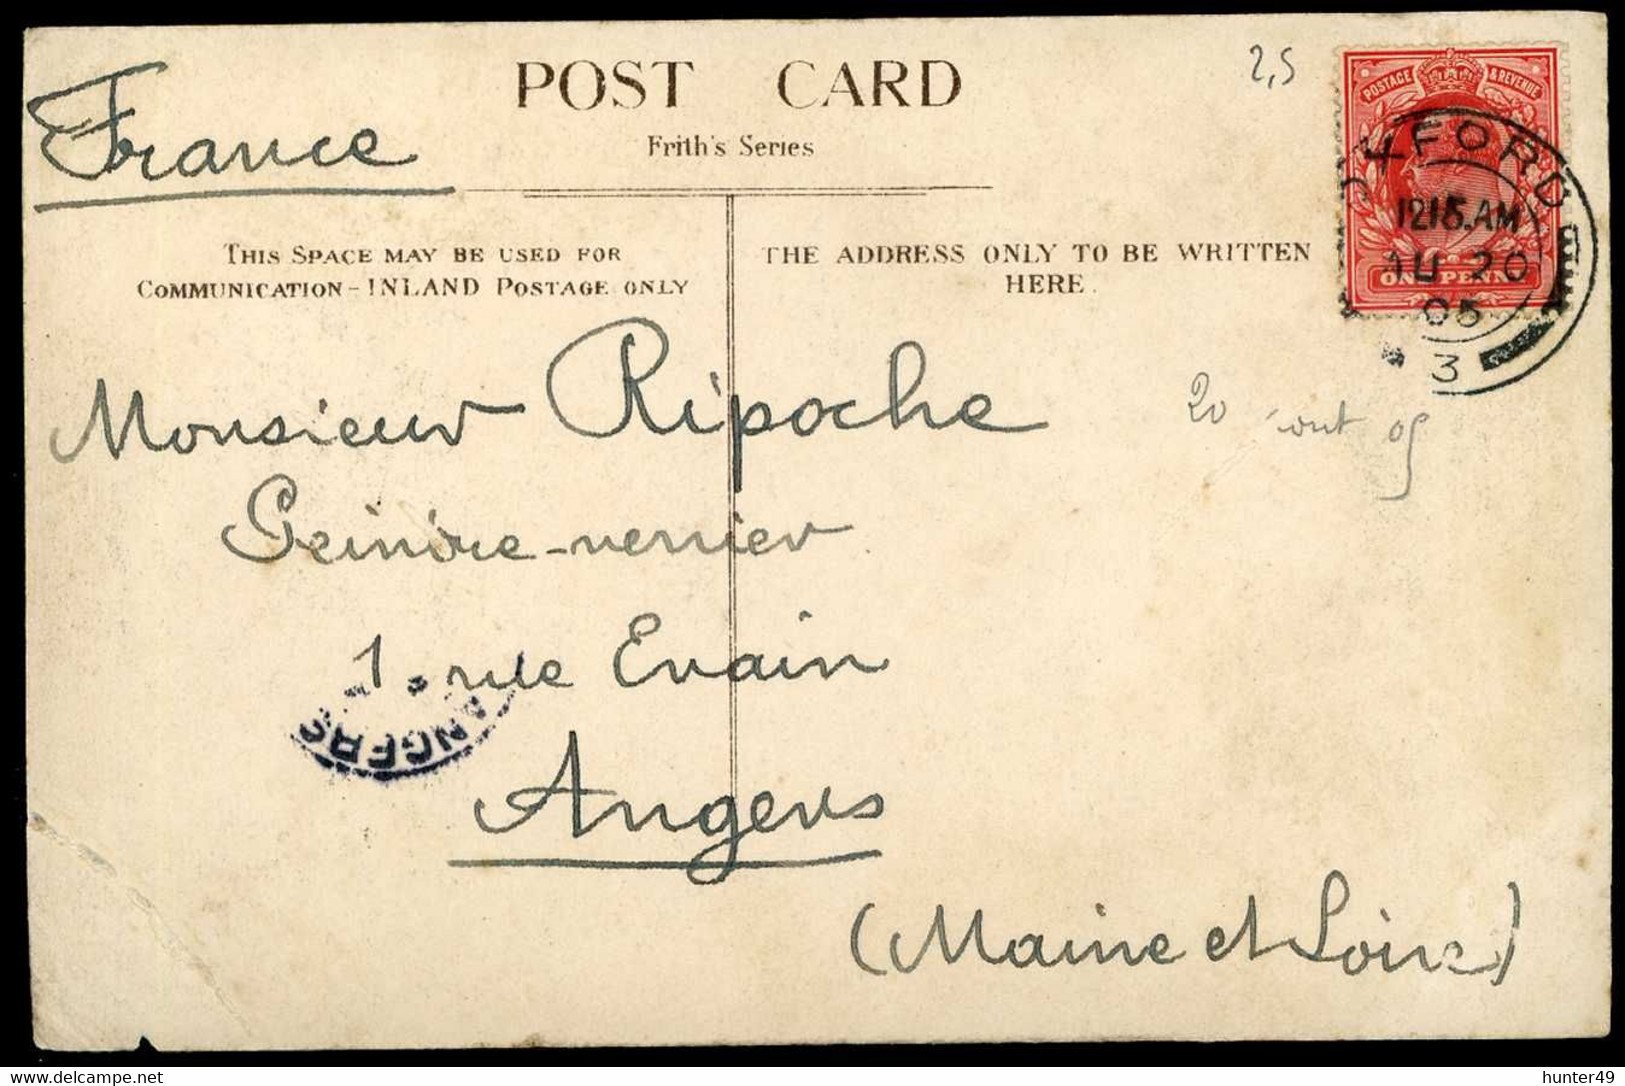 France
POST CARD
Frith's Series
2,5
POSTAGE & REVENUE
ONE PENNY
OXFORD
1215.AM
AU 20
05
3
THIS SPACE MAY BE USED FOR
COMMUNICATION - INLAND POSTAGE ONLY
THE ADDRESS ONLY TO BE WRITTEN
HERE.
Monsieur Ripoche
20 août 05
Peindre-verrier
1 rue Evain
ANGERS
Angers
(Maine et Loire)
hunter49